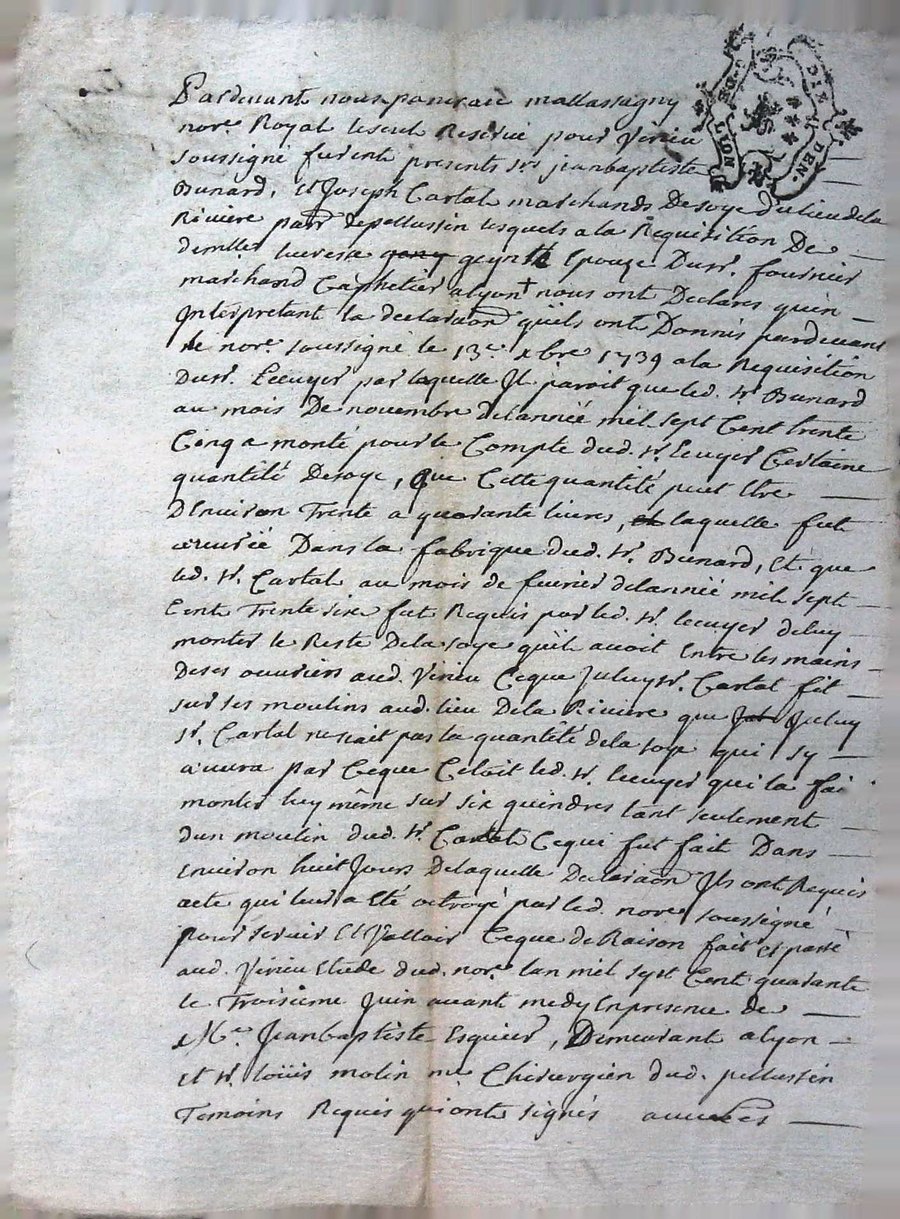 Pardevant nous pancrace mallassagny
nore. Royal le seul Reservé pour Virieu
soussigné furent presents srs jeanbaptiste
Bunard, et Joseph Cartal marchands De soye du lieu de la
Riviere parr. de pellussin lesquels a la Requisition De
demlle. Epouze Du sr. fournier
marchand Caphetier alyon + nous ont Declarés qu'en
Interpretant la declaraon qu'ils ont Donnés pardevant
le nore. soussigné le 13e. xbre 1739 a la Requisition
Du sr. Lecuyer par laquelle Il paroit que led. sr. Bunard
au mois De novembre de lannéé mil sept Cent trente
Cinq a monté pour le Compte dud. sr. lecuyer Certaine
quantité De soye, que Cette quantité peut Etre
D'Environ Trente a quarante livres, laquelle fut
ouvréé Dans la fabrique dud. sr. Bunard, Et que
led. sr. Cartal au mois de fevrier de lannéé mil sept
Cent Trente six fut Requis par led. sr. lecuyer de luy
monter le Reste De la soye qu'il avoit Entre les mains
De ses ouvriers aud. Virieu Ceque Jceluy sr. Cartal fit
sur ses moulins aud. lieu De la Riviere que Jceluy
sr. Cartal ne sçait pas la quantité de la soye qui sy
ouvra par Ceque Cetoit led. sr. lecuyer qui la fai
monter luy même sur six guindres tant seulement
dun moulin dud. sr. Cartal Cequi fut fait Dans
Environ huit Jours De laquelle Declaraon Jls ont Requis
acte qui leur a Eté octroyé par led. nore. soussigné
pour servir Et Valloir Ceque de Raison fait et passé
aud. Virieu Etude dud. nore. lan mil sept Cent quarante
le Troisieme Juin avant midy En presence de
Me. Jeanbaptiste Esquier, Demeurant alyon
Et sr. loüis molin me. Chirurgien dud. pellussin
Temoins Requis qui ont signés
LYON
DEN.